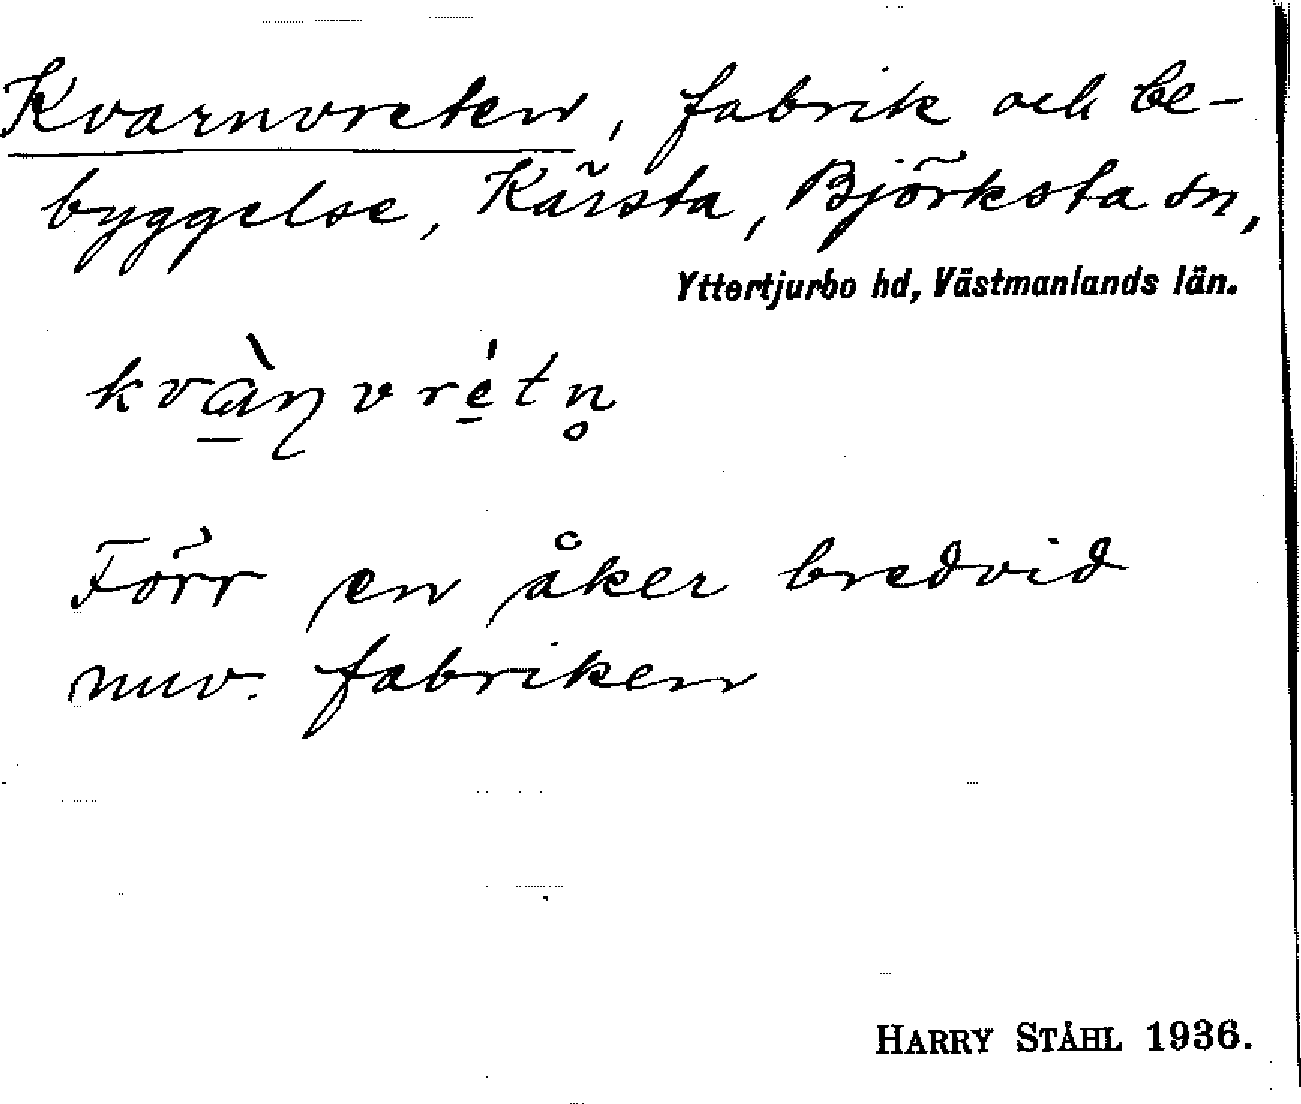 Kvarnvreten, fabrik och be-
byggelse, Kärsta, Björksta sn,
Yttertjurbo hd, Västmanlands län.
kvàɳvrétn̥
Förr en åker bredvid
nuv. fabriken
HARRY STÅHL 1936.